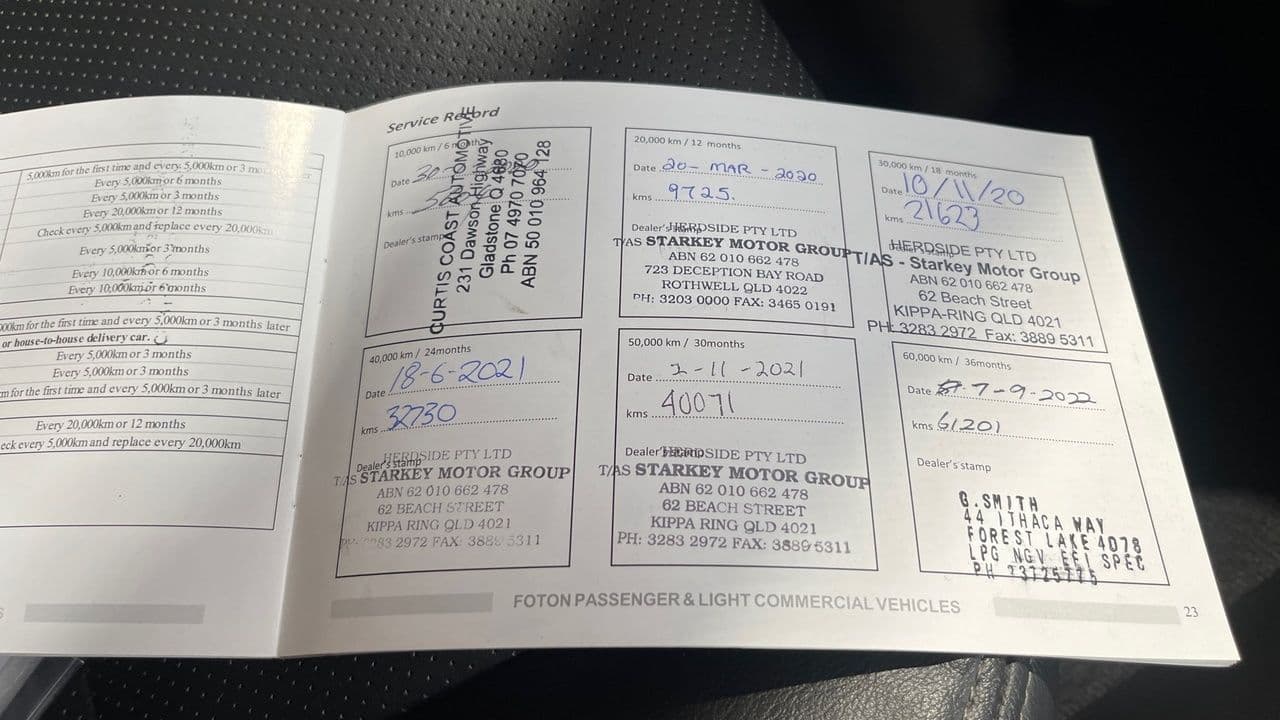 5,000km for the first time and every 5,000km or 3 mo
Every 5,000km or 6 months
Every 5,000km or 3 months
Every 20,000km or 12 months
Check every 5,000km and replace every 20,000km
Every 5,000km or 3 months
Every 10,000km or 6 months
Every 10,000km or 6 months
000km for the first time and every 5,000km or 3 months later
or house-to-house delivery car.
Every 5,000km or 3 months
Every 5,000km or 3 months
m for the first time and every 5,000km or 3 months later
Every 20,000km or 12 months
eck every 5,000km and replace every 20,000km
Service Record
10,000 km / 6 month
Date 30-
kms
Dealer's stamp
CURTIS COAST AUTOMOTIVE
231 Dawson Highway
Gladstone Q 4680
Ph 07 4970 7070
ABN 50 010 964 128
20,000 km / 12 months
Date 20-MAR-2020
kms 9725.
Dealer's stamp
HERDSIDE PTY LTD
T/AS STARKEY MOTOR GROUP
ABN 62 010 662 478
723 DECEPTION BAY ROAD
ROTHWELL QLD 4022
PH: 3203 0000 FAX: 3465 0191
30,000 km / 18 months
Date 10/11/20
kms 21623
HERDSIDE PTY LTD
T/AS - Starkey Motor Group
ABN 62 010 662 478
62 Beach Street
KIPPA-RING QLD 4021
PH: 3283 2972 Fax: 3889 5311
40,000 km / 24months
Date 18-6-2021
kms 32730
Dealer's stamp
HERDSIDE PTY LTD
T/AS STARKEY MOTOR GROUP
ABN 62 010 662 478
62 BEACH STREET
KIPPA RING QLD 4021
PH: 3283 2972 FAX: 3889 5311
50,000 km / 30months
Date 2-11-2021
kms 40071
Dealer's stamp
HERDSIDE PTY LTD
T/AS STARKEY MOTOR GROUP
ABN 62 010 662 478
62 BEACH STREET
KIPPA RING QLD 4021
PH: 3283 2972 FAX: 3889 5311
60,000 km / 36months
Date 7-9-2022
kms 61201
Dealer's stamp
G.SMITH
44 ITHACA WAY
FOREST LAKE 4078
LPG NGV EFI SPEC
PH 23725775
FOTON PASSENGER & LIGHT COMMERCIAL VEHICLES
23